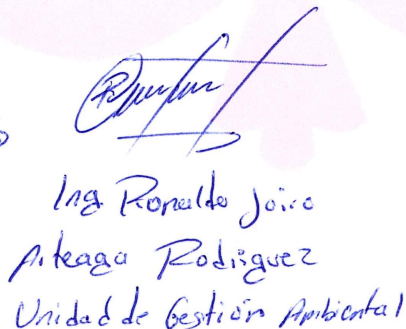 Ing. Ronaldo Joiro
Arteaga Rodriguez
Unidad de Gestión Ambiental